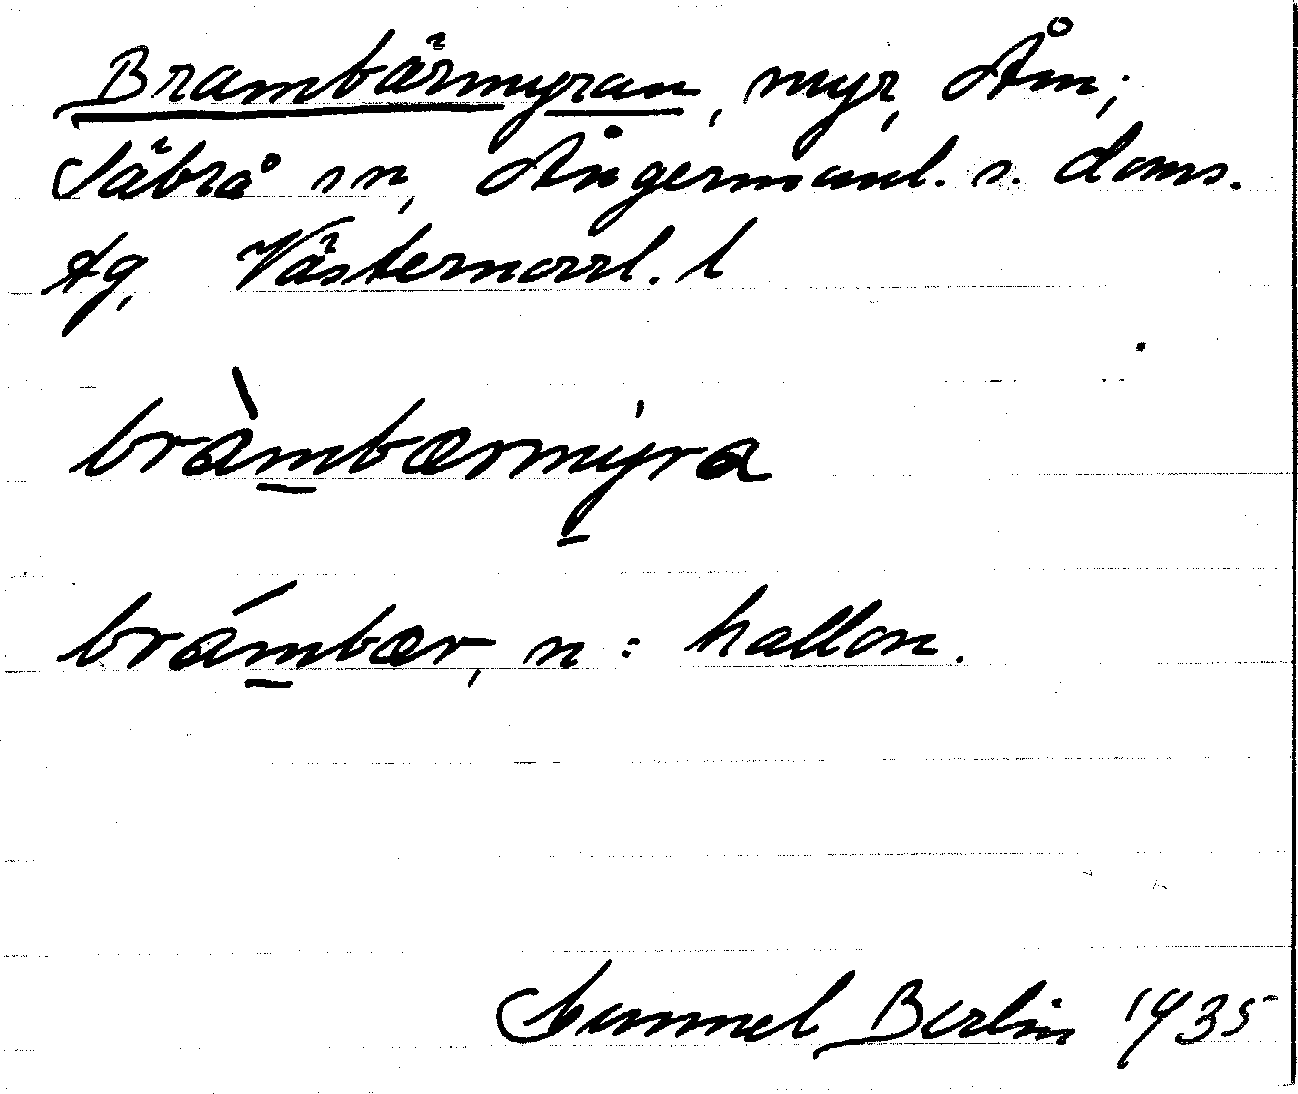 Brambärmyran, myr, Åm;
Säbrå sn, Ångermanl. s. doms.
tg, Västernorrl. l
bràmbærmyra
brámbær, n: hallon.
Samuel Berlin 1935